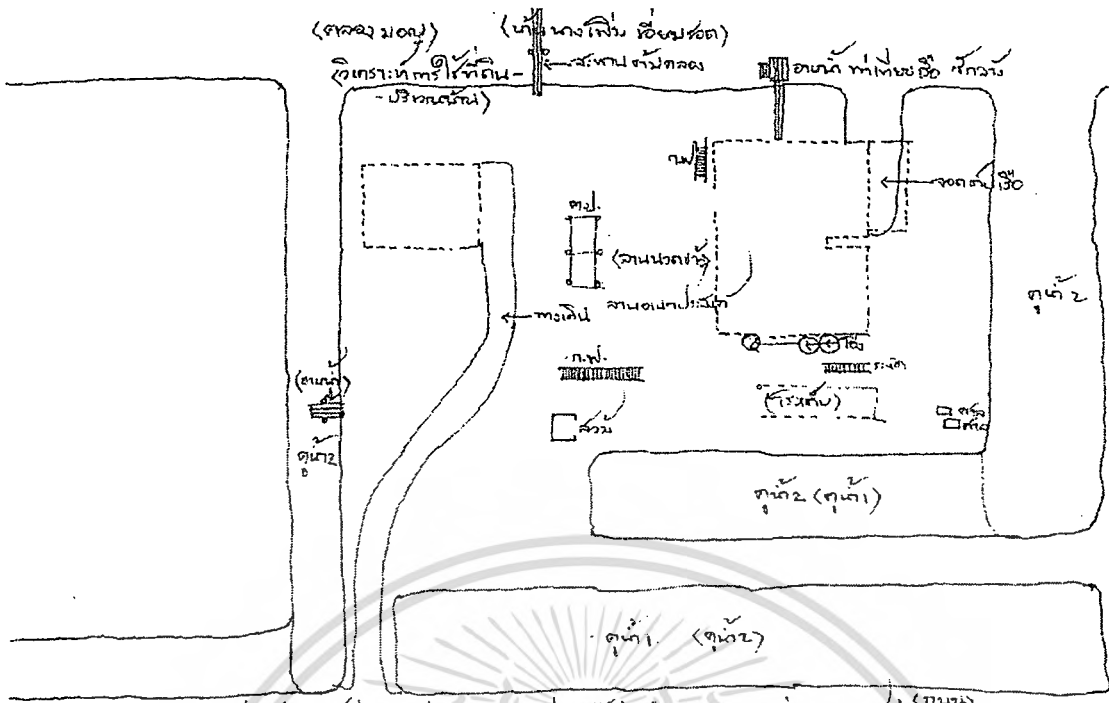 (คลองมอญ)
(บ้านนางเพิ่ม เอี่ยมรอด)
(วิเคราะห์การใช้ที่ดิน-
-บริเวณบ้าน)
สะพานข้ามคลอง
อาบน้ำ ท่าเทียบเรือ ซักล้าง
ก.ฟ.
จอดเรือ
ต.ป.
(ลานนวดข้าว)
ลานอเนกประสงค์
ทางเดิน
คูน้ำ 2
โอ่ง
ก.ฟ.
(อาบน้ำ)
ส้วม
คูน้ำ 2
ศาล
ศาล
คูน้ำ 2 (คูน้ำ 1)
คูน้ำ 1. (คูน้ำ 2)